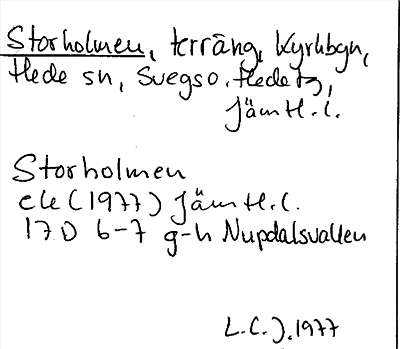 Storholmen, terräng, Kyrkbyn,
Hede sn, Svegs o. Hede tg,
Jämtl. l.
Storholmen
ek (1977) Jämtl. l.
17 D 6-7 g-h Nupdalsvallen
L.C.J. 1977